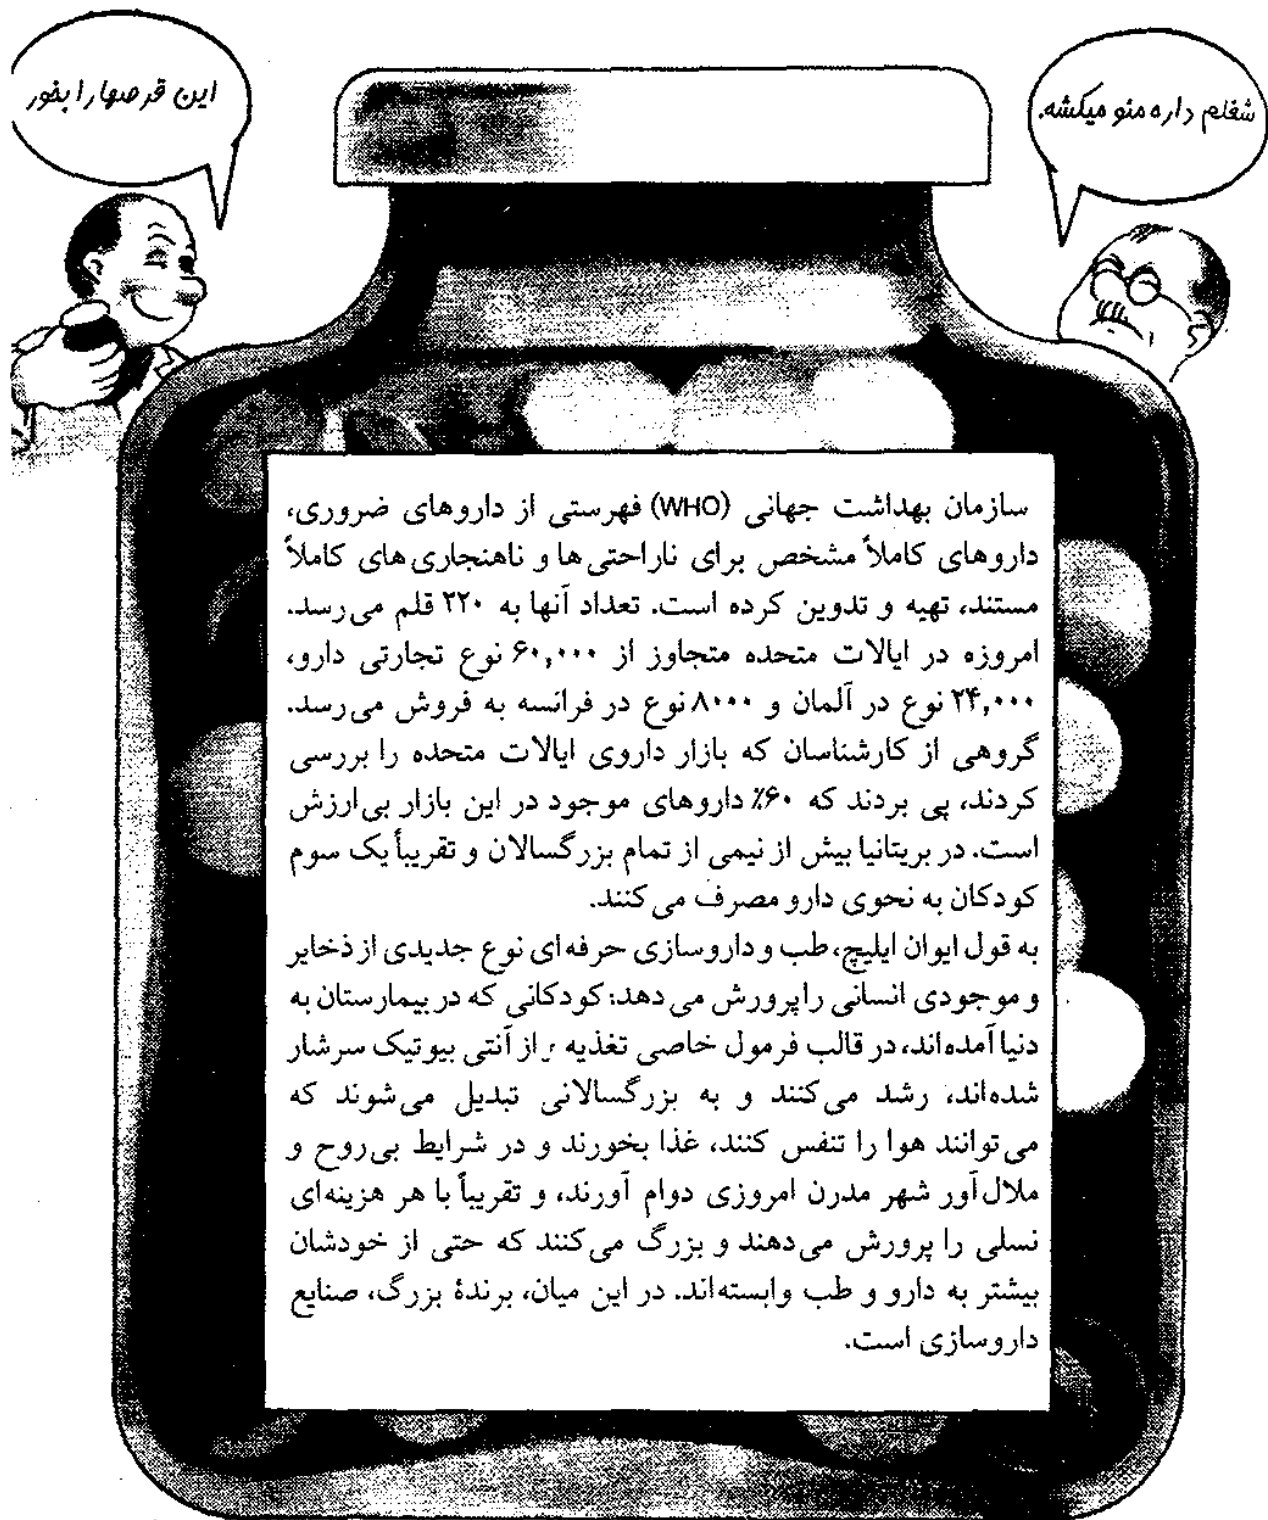 شغلم داره منو میکشه.
این قرصها را بخور
سازمان بهداشت جهانی (WHO) فهرستی از داروهای ضروری،
داروهای کاملاً مشخص برای ناراحتی‌ها و ناهنجاری‌های کاملاً
مستند، تهیه و تدوین کرده است. تعداد آنها به ۲۲۰ قلم می‌رسد.
امروزه در ایالات متحده متجاوز از ۶۰,۰۰۰ نوع تجارتی دارو،
۲۴,۰۰۰ نوع در آلمان و ۸۰۰۰ نوع در فرانسه به فروش می‌رسد.
گروهی از کارشناسان که بازار داروی ایالات متحده را بررسی
کردند، پی بردند که ۶۰٪ داروهای موجود در این بازار بی‌ارزش
است. در بریتانیا بیش از نیمی از تمام بزرگسالان و تقریباً یک سوم
کودکان به نحوی دارو مصرف می‌کنند.
به قول ایوان ایلیچ، طب و داروسازی حرفه‌ای نوع جدیدی از ذخایر
و موجودی انسانی را پرورش می‌دهد: کودکانی که در بیمارستان به
دنیا آمده‌اند، در قالب فرمول خاصی تغذیه و از آنتی بیوتیک سرشار
شده‌اند، رشد می‌کنند و به بزرگسالانی تبدیل می‌شوند که
می‌توانند هوا را تنفس کنند، غذا بخورند و در شرایط بی‌روح و
ملال‌آور شهر مدرن امروزی دوام آورند، و تقریباً با هر هزینه‌ای
نسلی را پرورش می‌دهند و بزرگ می‌کنند که حتی از خودشان
بیشتر به دارو و طب وابسته‌اند. در این میان، برندهٔ بزرگ، صنایع
داروسازی است.